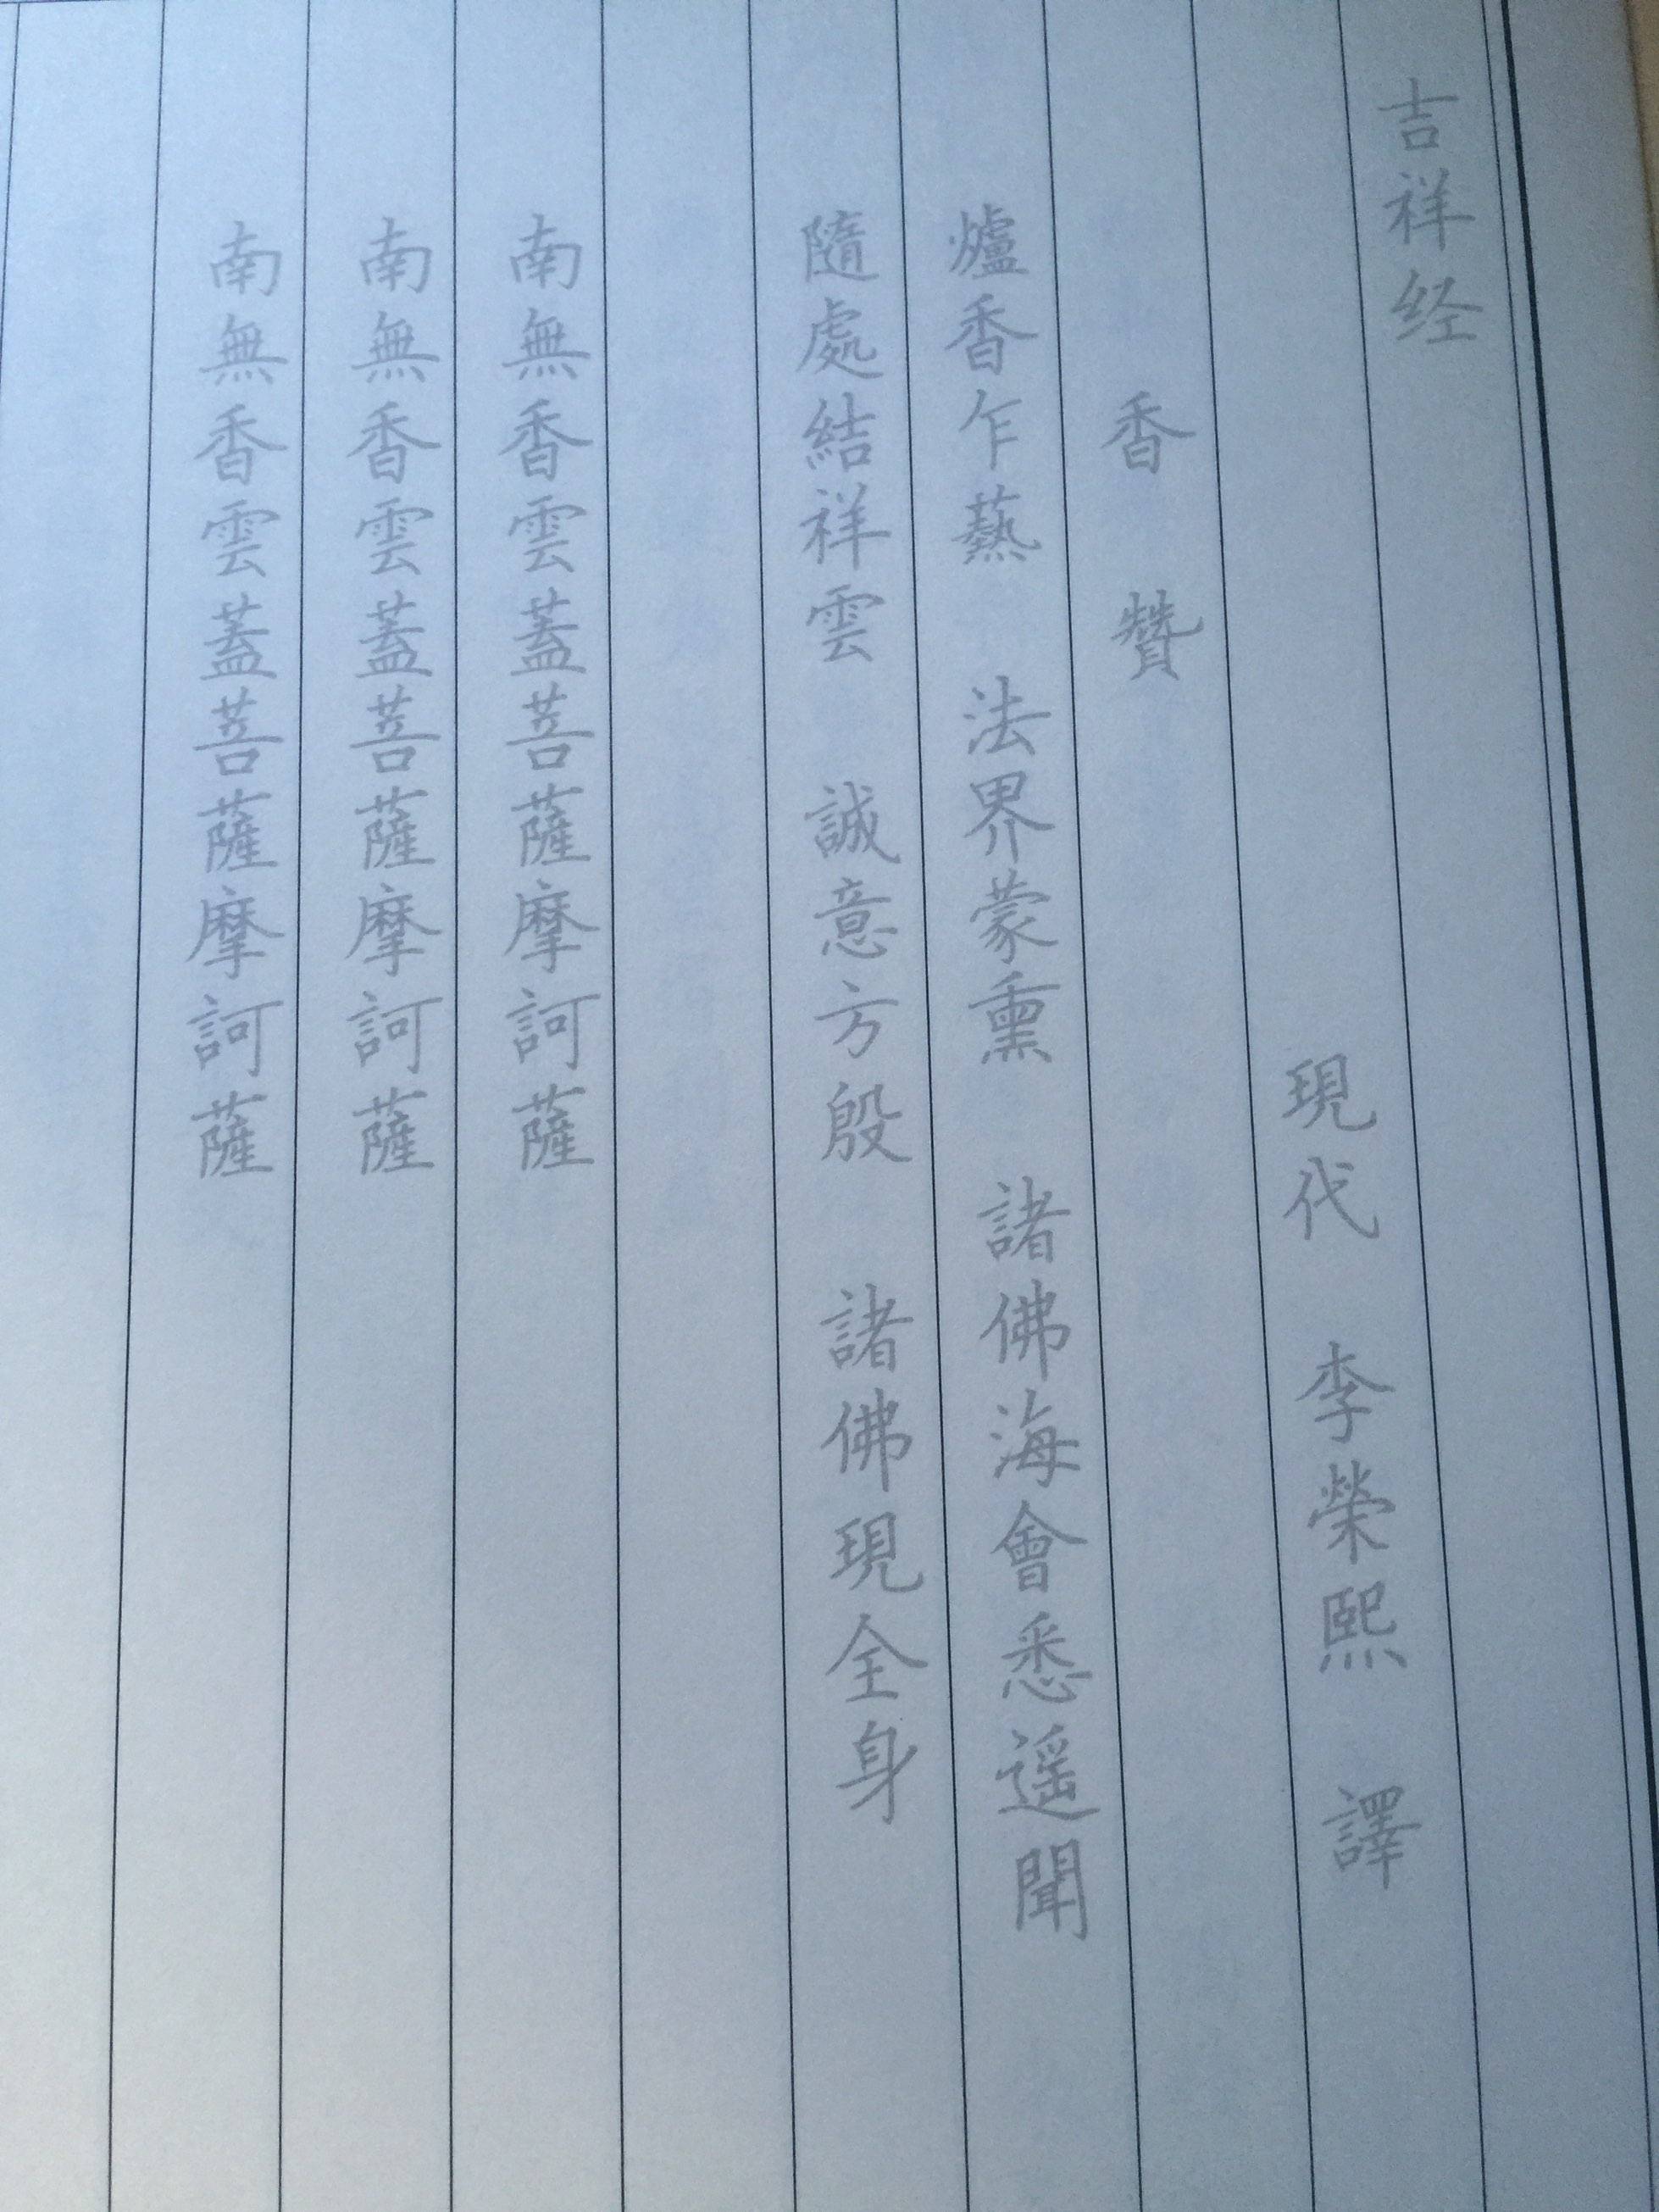 吉祥经
現代 李榮熙 譯
香 贊
爐香乍爇 法界蒙熏 諸佛海會悉遥聞
隨處結祥雲 誠意方殷 諸佛現全身
南無香雲蓋菩薩摩訶薩
南無香雲蓋菩薩摩訶薩
南無香雲蓋菩薩摩訶薩